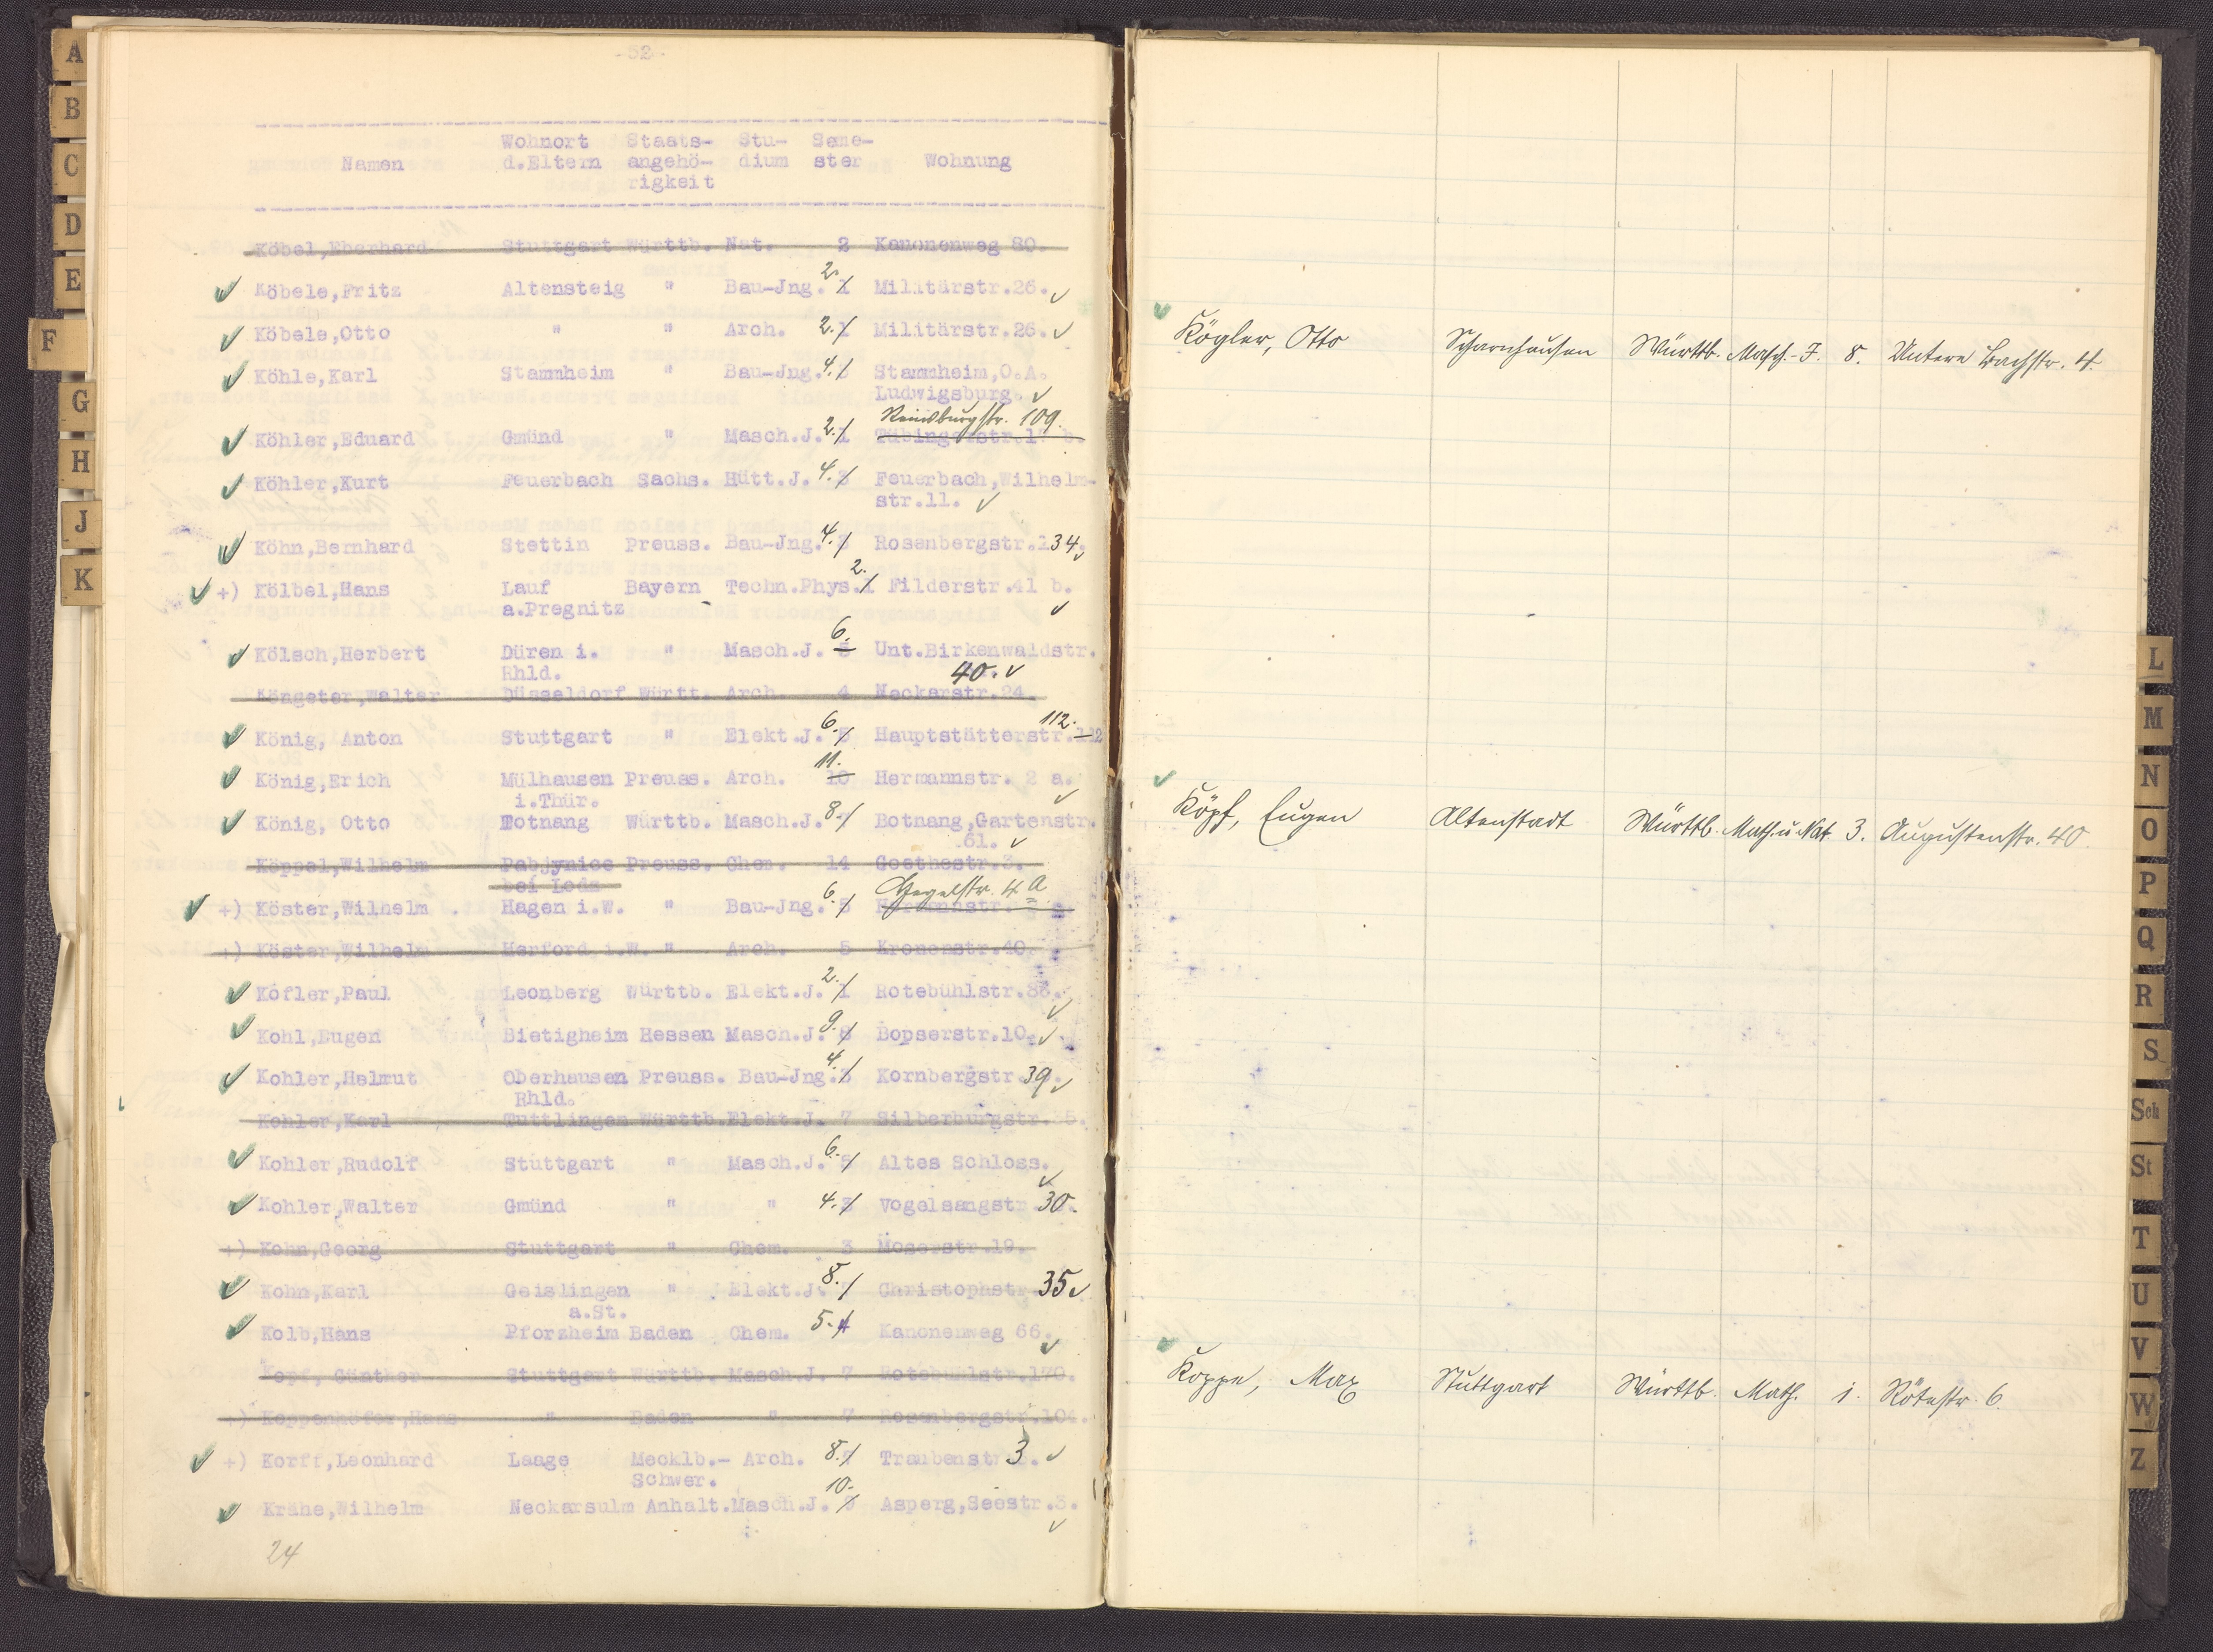 -52-
Wohnort Staats- Stu- Seme-
Namen d.Eltern angehö- dium ster Wohnung
rigkeit
Köbel,Eberhard Stuttgart Württb. Nat. 2 Kanonenweg 80.
Köbele,Fritz Altensteig " Bau-Jng. 2. 1 Militärstr.26.
Köbele,Otto " " Arch. 2. 1 Militärstr.26.
Köhle,Karl Stammheim " Bau-Jng. 4. Stammheim,O.A.
Ludwigsburg.
Reinsburgstr. 109.
Köhler,Eduard Gmünd " Masch.J. 2. 1 Tübingerstr.
Köhler,Kurt Feuerbach Sachs. Hütt.J. 4. 3 Feuerbach,Wilhelm-
str.11.
Köhn,Bernhard Stettin Preuss. Bau-Jng. 4. 3 Rosenbergstr.134.
+) Kölbel,Hans Lauf Bayern Techn.Phys. 2. 1 Filderstr.41 b.
a.Pregnitz
Kölsch,Herbert Düren i. " Masch.J. 6. 5 Unt.Birkenwaldstr.
Rhld. 40.
Köngeter,Walter Düsseldorf Württ. Arch. 4 Neckarstr.24.
112.
König, Anton Stuttgart " Elekt.J. 6. 5 Hauptstätterstr.
König,Erich Mülhausen Preuss. Arch. 11. 10 Hermannstr. 2 a.
i.Thür.
König, Otto Botnang Württb. Masch.J. 8. 7 Botnang,Gartenstr.
61.
Köppel,Wilhelm Pabjynice Preuss. Chem. 14 Goethestr.3.
bei Lodz
Hegelstr. 4 A
+) Köster,Wilhelm Hagen i.W. " Bau-Jng. 6. 5
+) Köster,Wilhelm Herford i.W. " Arch. 5 Kronenstr.40.
Kofler,Paul Leonberg Württb. Elekt.J. 2. 1 Rotebühlstr.
Kohl,Eugen Bietigheim Hessen Masch.J. 9. 8 Bopserstr.10.
Kohler,Helmut Oberhausen Preuss. Bau-Jng. 4. 3 Kornbergstr.39
Rhld.
Kohler,Karl Tuttlingen Württb.Elekt.J. 7 Silberburgstr.
Kohler,Rudolf Stuttgart " Masch.J. 6. 5 Altes Schloss.
Kohler,Walter Gmünd " " 4. 3 Vogelsangstr 30.
+) Kohn,Georg Stuttgart " Chem. 3 Moserstr.19.
Kohn,Karl Geislingen " Elekt.J. 8. 7 Christophstr 35
a.St.
Kolb,Hans Pforzheim Baden Chem. 5. 4 Kanonenweg 66.
Kopf, Günther Stuttgart Württb. Masch.J. 7 Rotebühlstr.170.
+) Koppenhöfer,Hans " Baden " 7 Rosenbergstr.104.
+) Korff,Leonhard Laage Mecklb.- Arch. 8. 7 Traubenstr 3.
Schwer.
Krähe,Wilhelm Neckarsulm Anhalt.Masch.J. 10. 9 Asperg,Seestr.3.
24
Kögler, Otto Scharnhausen Württb. Masch.-J. 8. Untere Bachstr. 4.
Köpf, Eugen Altenstadt Württb. Math.u.Nat 3. Augustenstr. 40.
Koppe, Max Stuttgart Württb. Math. 1. Rötestr. 6.
A
B
C
D
E
F
G
H
J
K
L
M
N
O
P
Q
R
S
Sch
St
T
U
V
W
Z